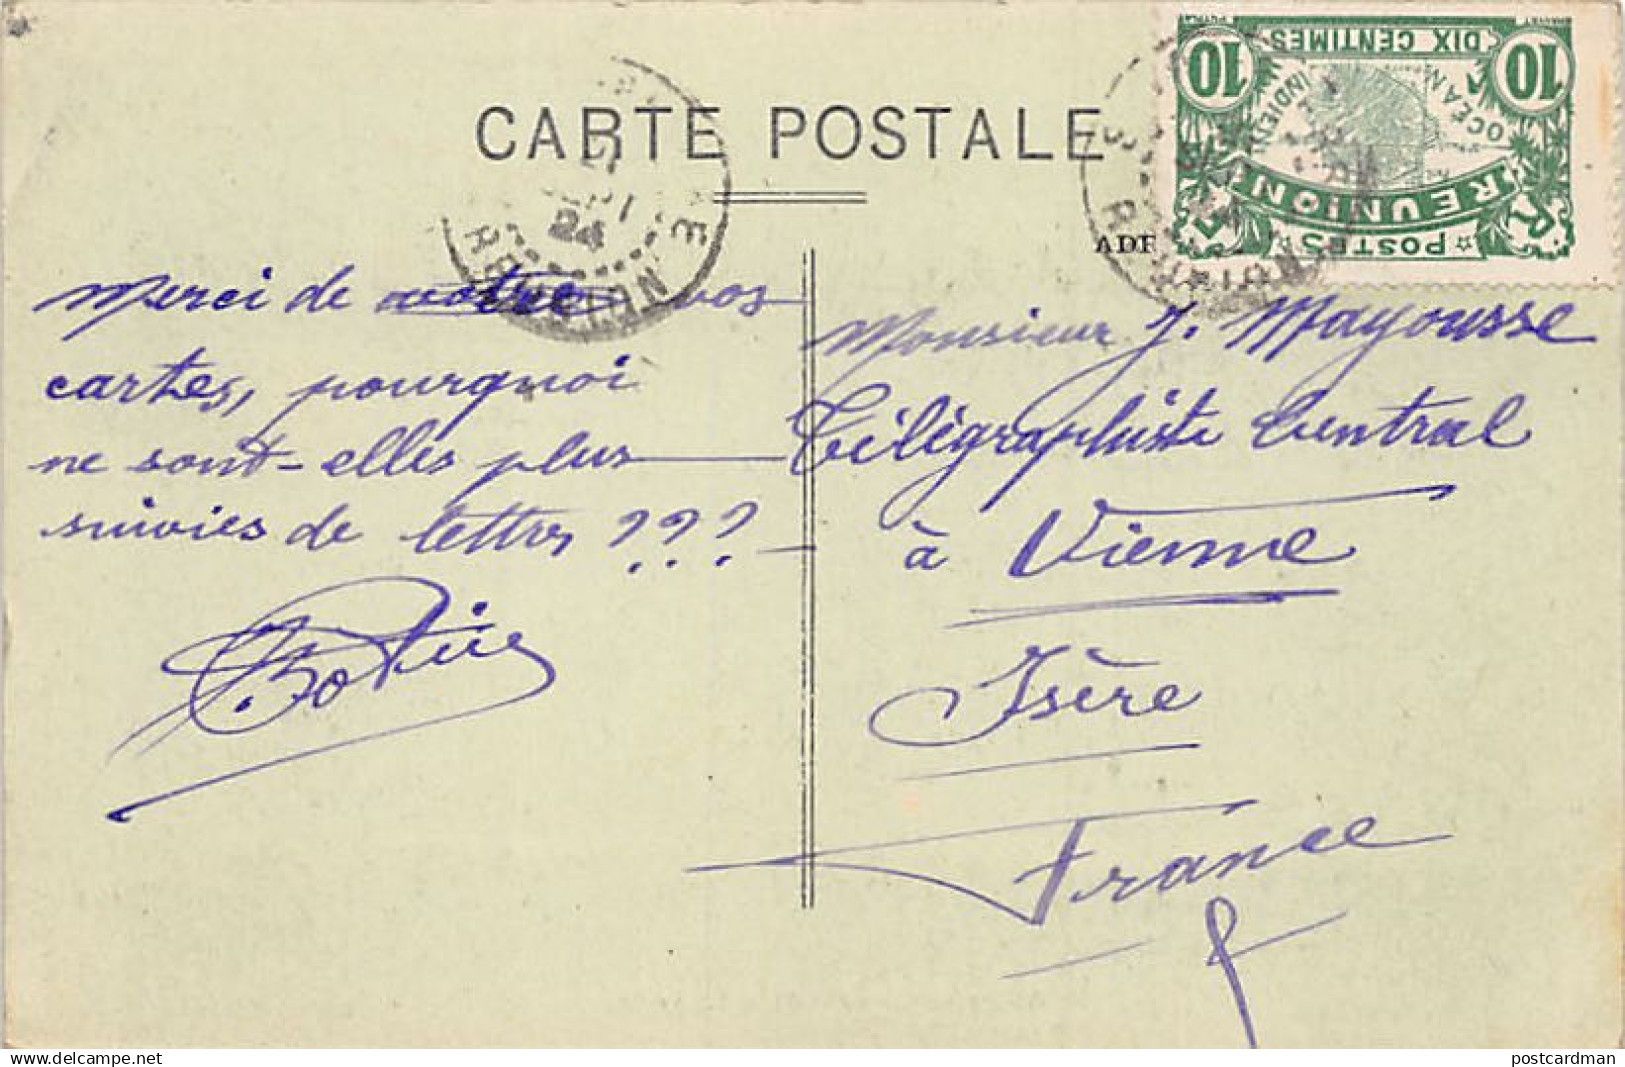 CARTE POSTALE
10 DIX CENTIMES 10
OCÉAN INDIEN
RÉUNION
POSTES
ADR
Merci de votre vos
cartes, pourquoi
ne sont-elles plus
suivies de lettres ???
Monsieur J. Mayousse
Télégraphiste Central
à Vienne
Isère
France
24
delcampe.net
postcardman